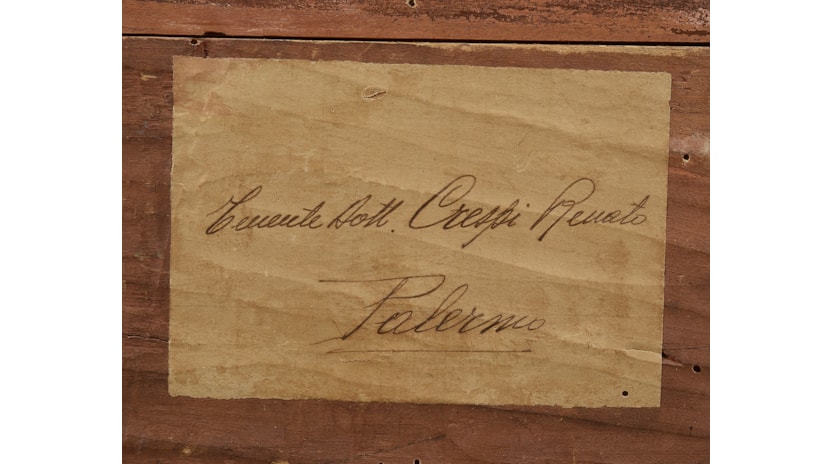 Tenente Dott. Crespi Renato
Palermo